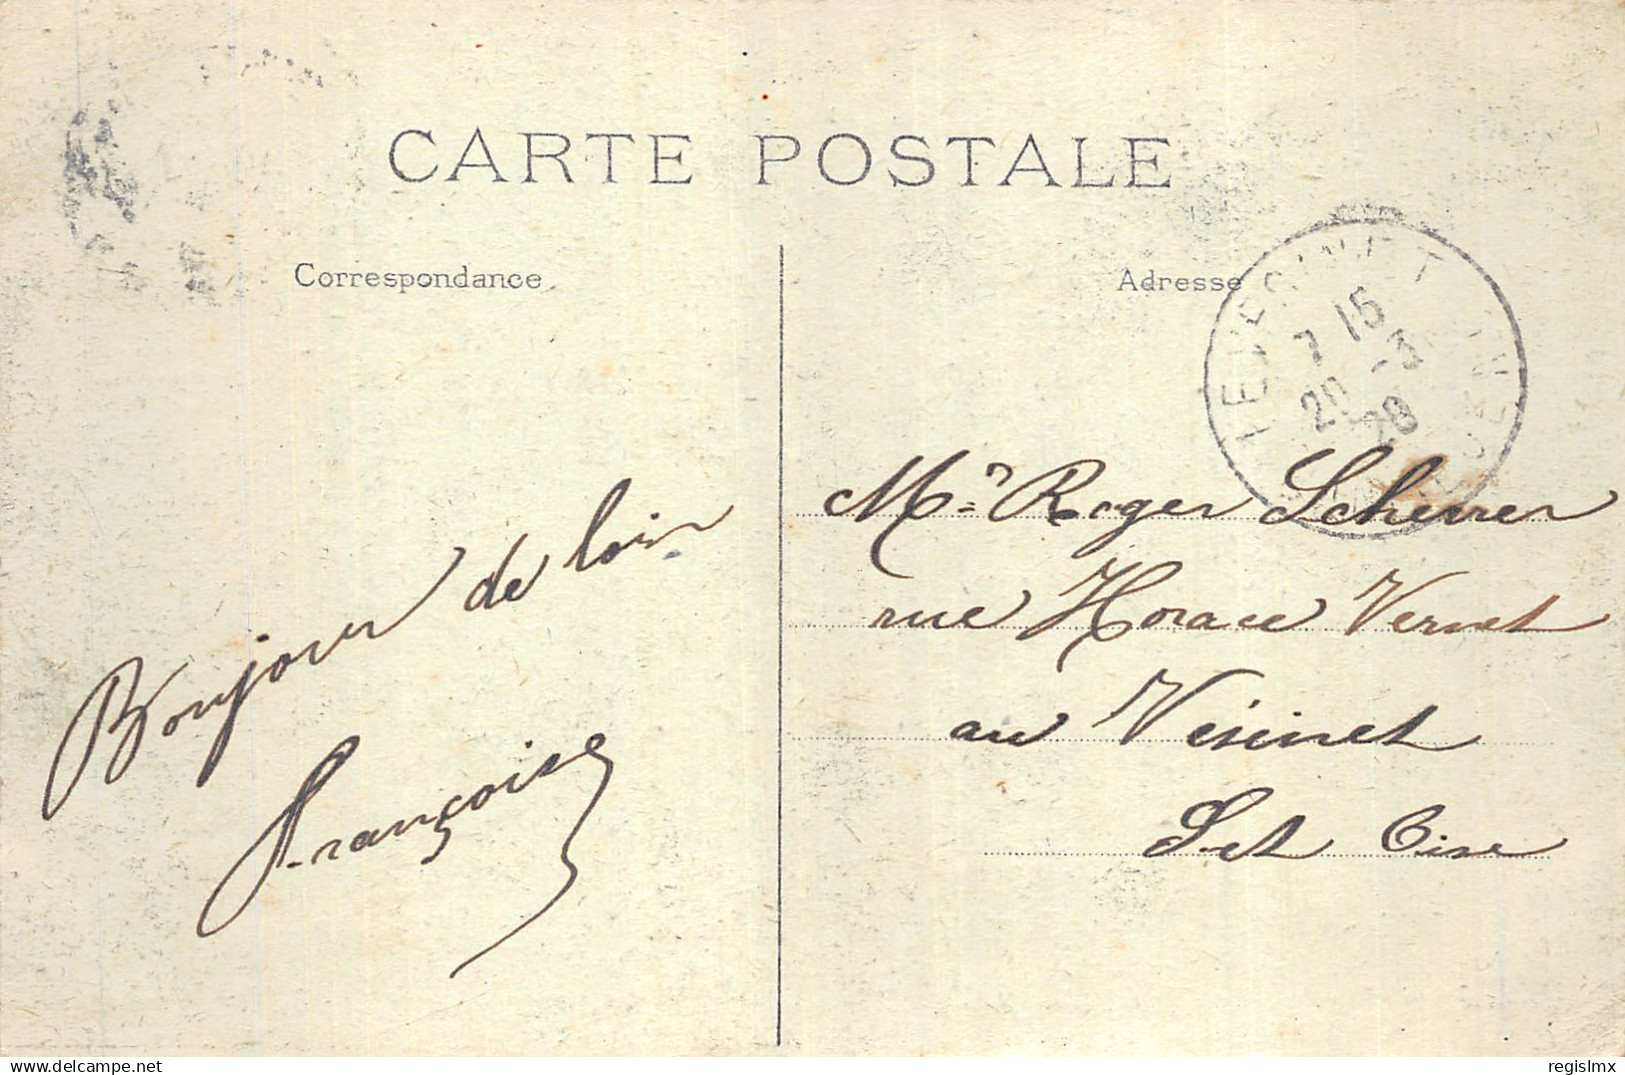 CARTE POSTALE
Correspondance
Adresse
LE VESINET
7 15
20 -3
28
Bonjour de loin
Françoise
Mr Roger Scherrer
rue Horace Vernet
au Vésinet
S. et Oise
regislmx